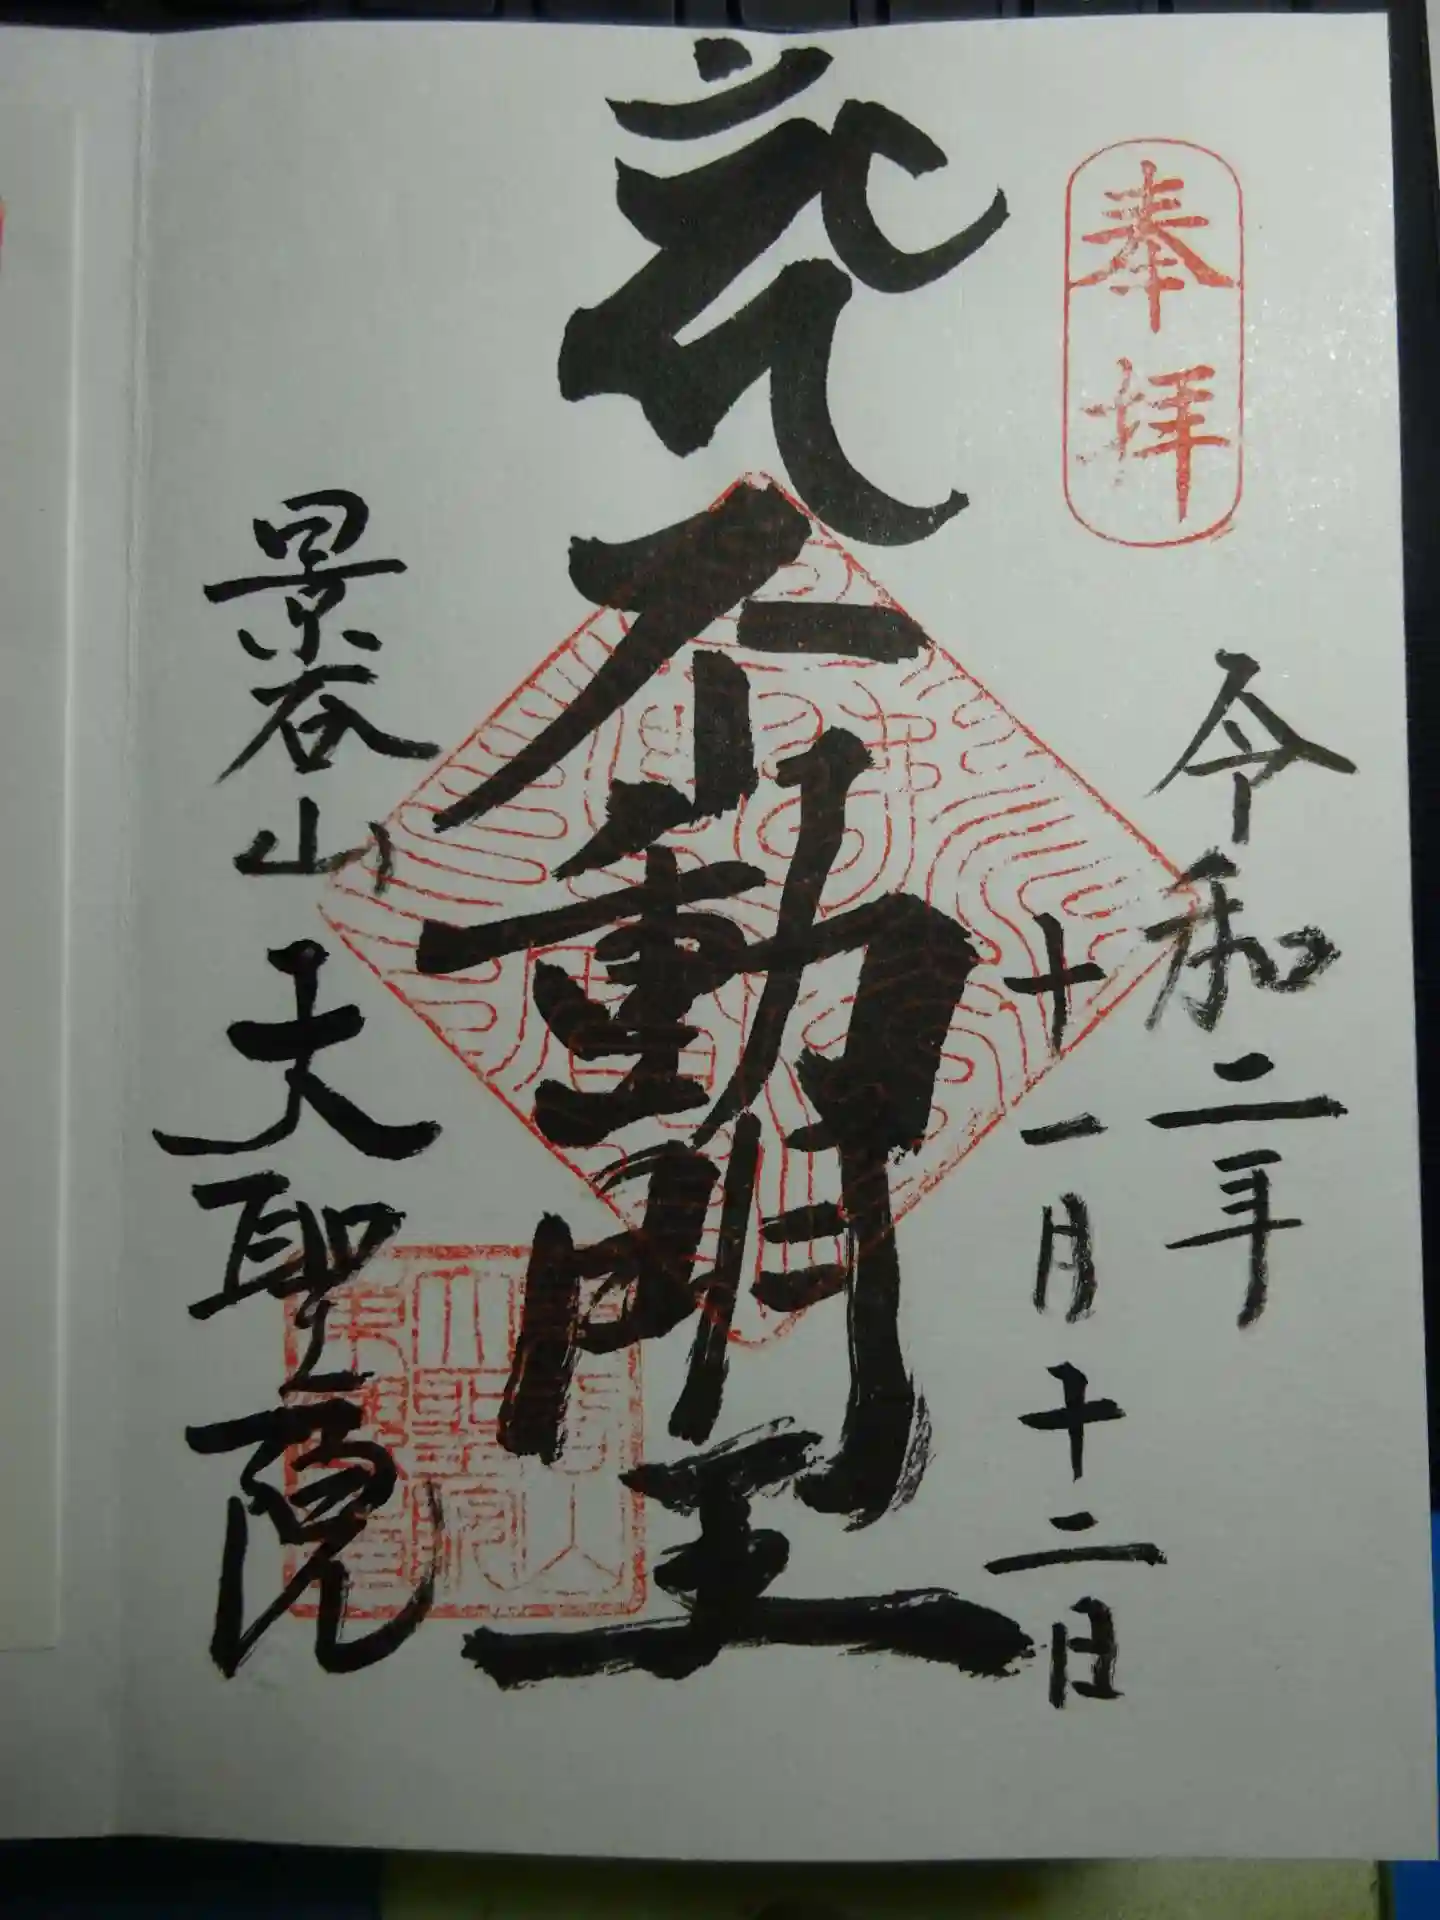 奉拝
令和二年
十一月十二日
不動明王
景谷山 大聖院